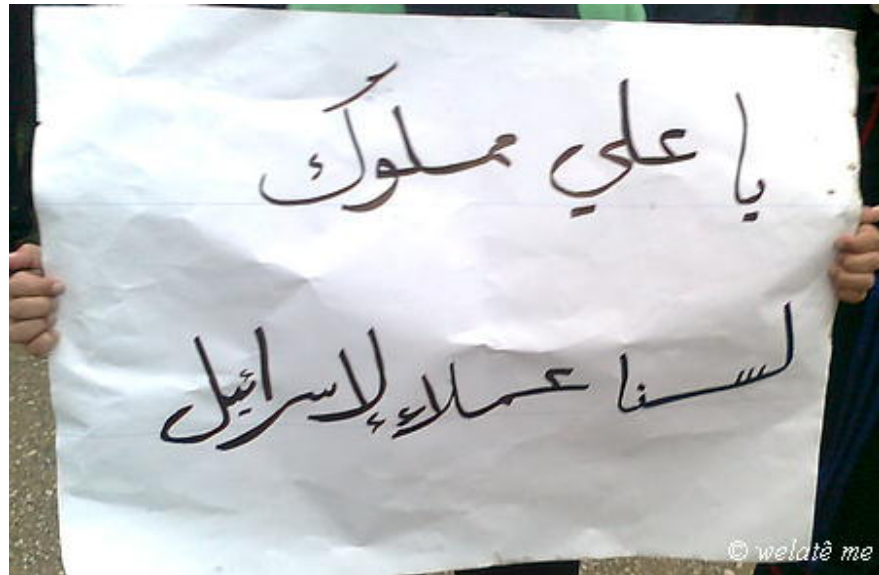 يا علي مملوك
لسنا عملاء لإسرائيل
© welatê me